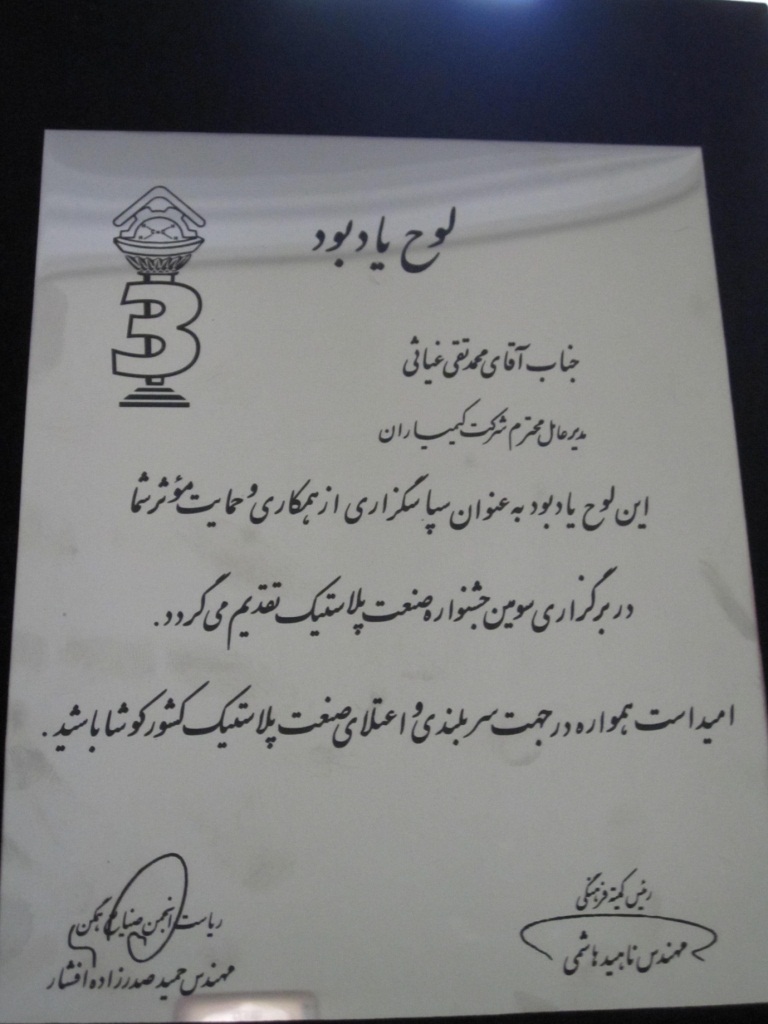 لوح یادبود
3
جناب آقای محمدتقی غیاثی
مدیرعامل محترم شرکت کیمیاران
این لوح یادبود به عنوان سپاسگزاری از همکاری و حمایت مؤثر شما
در برگزاری سومین جشنواره صنعت پلاستیک تقدیم می گردد.
امید است همواره در جهت سربلندی و اعتلای صنعت پلاستیک کشور کوشا باشید.
رئیس کمیته فرهنگی
مهندس ناهید هاشمی
ریاست انجمن صنایع همگن
مهندس حمید صدرزاده افشار